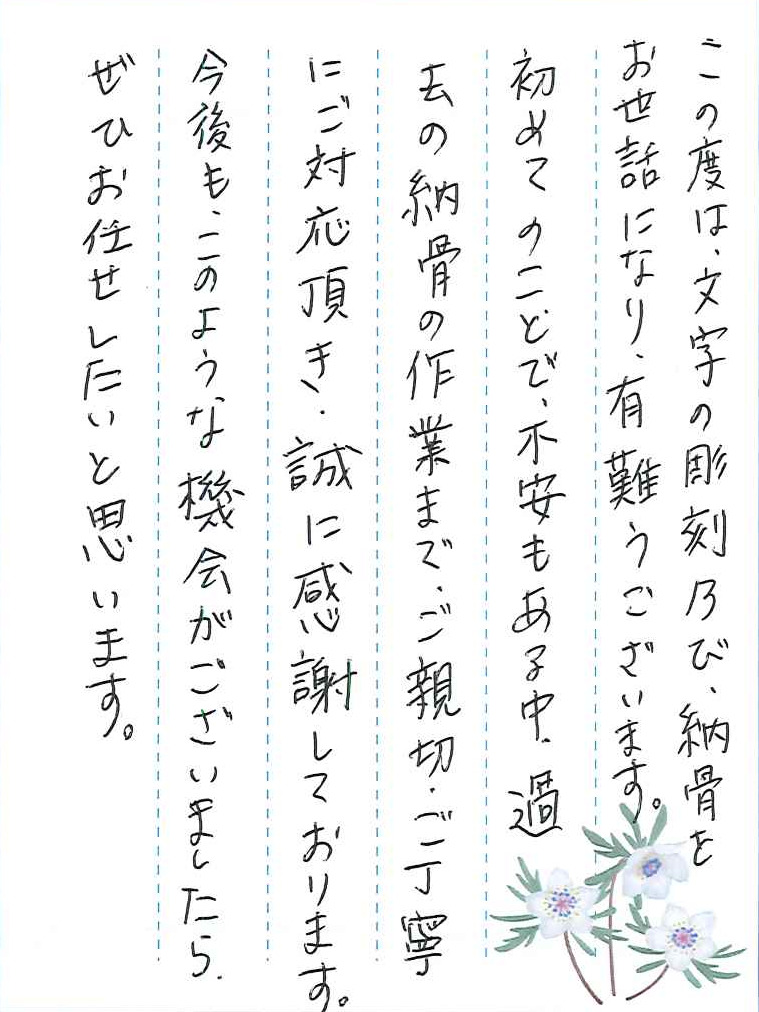 この度は、文字の彫刻乃び、納骨を
お世話になり、有難うございます。
初めてのことで、不安もある中、過
去の納骨の作業まで、ご親切、ご丁寧
にご対応頂き、誠に感謝しております。
今後も、このような機会がございましたら、
ぜひお任せしたいと思います。